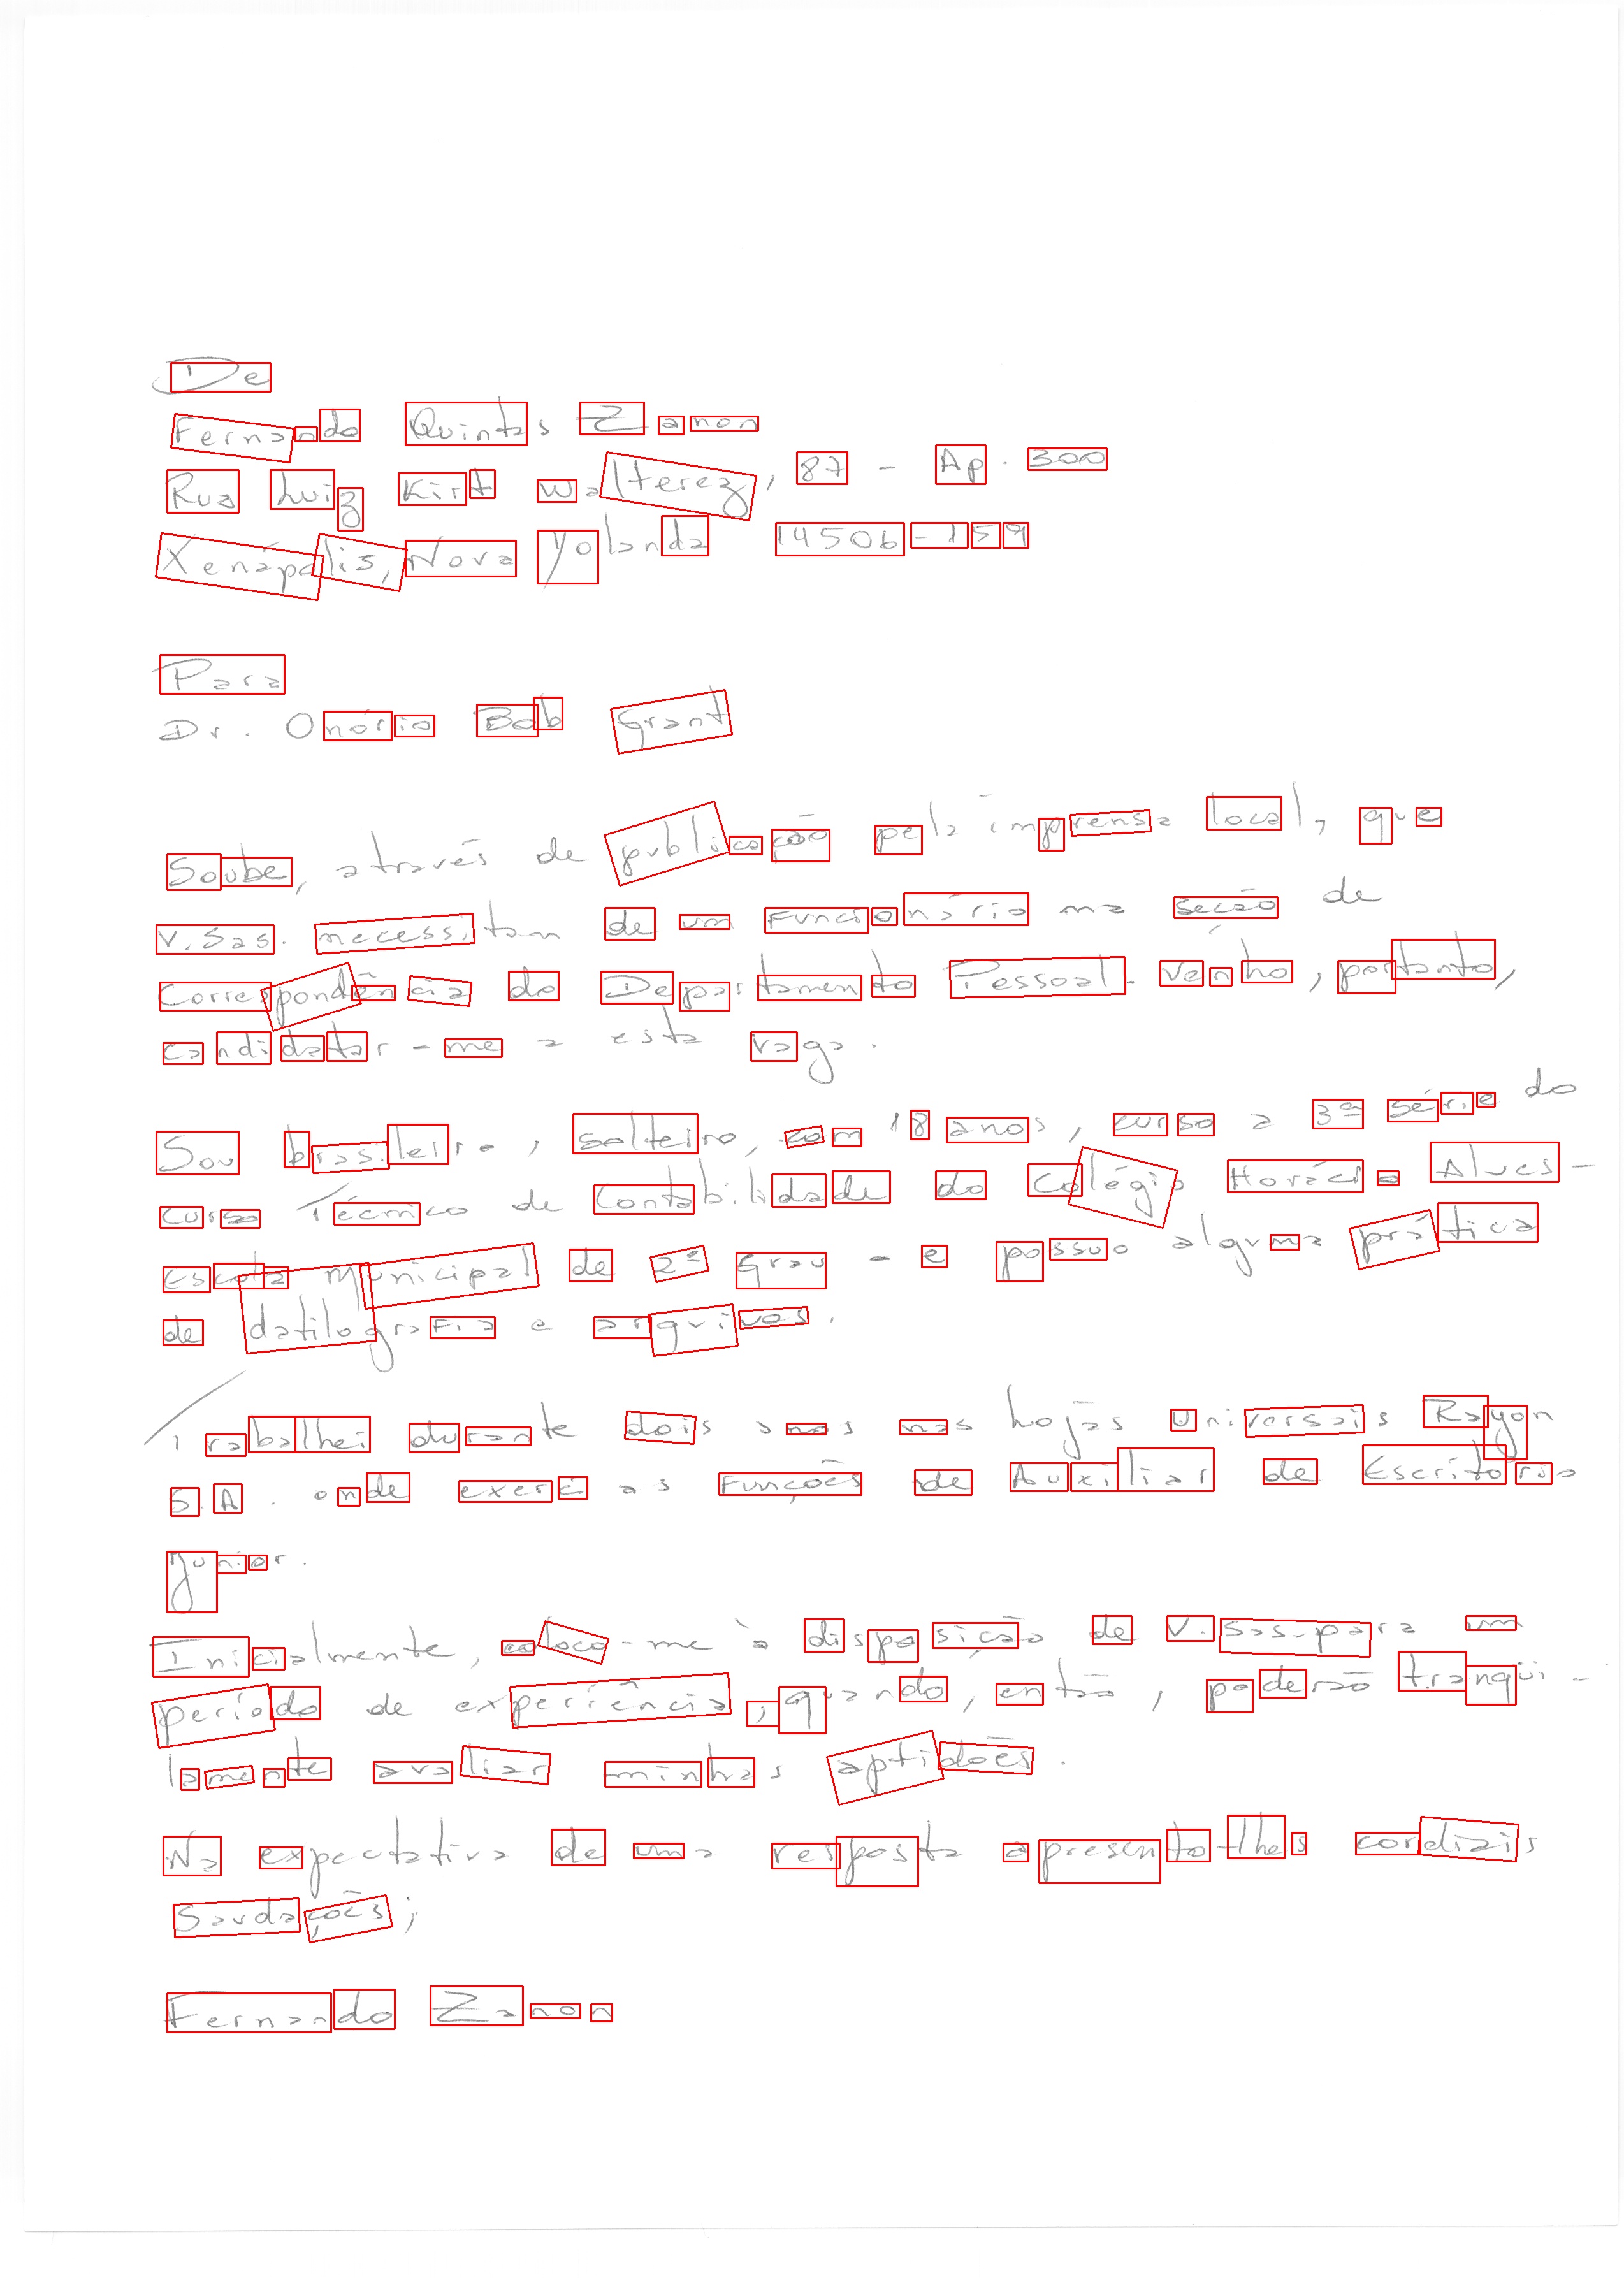 De
Fernando Quintas Zanon
Rua Luiz Kirt Walterez, 87 - Ap. 300
Xenápolis, Nova Yolanda 14506-159
Para
Dr. Onório Bob Grant
Soube, através de publicação pela imprensa local, que
V.Sas. necessitam de um funcionário na seção de
Correspondência do Departamento Pessoal. Venho, portanto,
candidatar-me a esta vaga.
Sou brasileiro, solteiro, com 18 anos, curso a 3ª série do
curso Técnico de Contabilidade do Colégio Horácio Alves -
Escola Municipal de 2º Grau - e possuo alguma prática
de datilografia e arquivos.
Trabalhei durante dois anos nas hojas Universais Rayon
S.A. onde exerci as Funções de Auxiliar de Escritório
Junior.
Inicialmente, coloco-me à disposição de V.Sas. para um
período de experiência, quando, então, poderão tranqüi-
lamente avaliar minhas aptidões.
Na expectativa de uma resposta apresento-lhes cordiais
Saudações;
Fernando Zanon